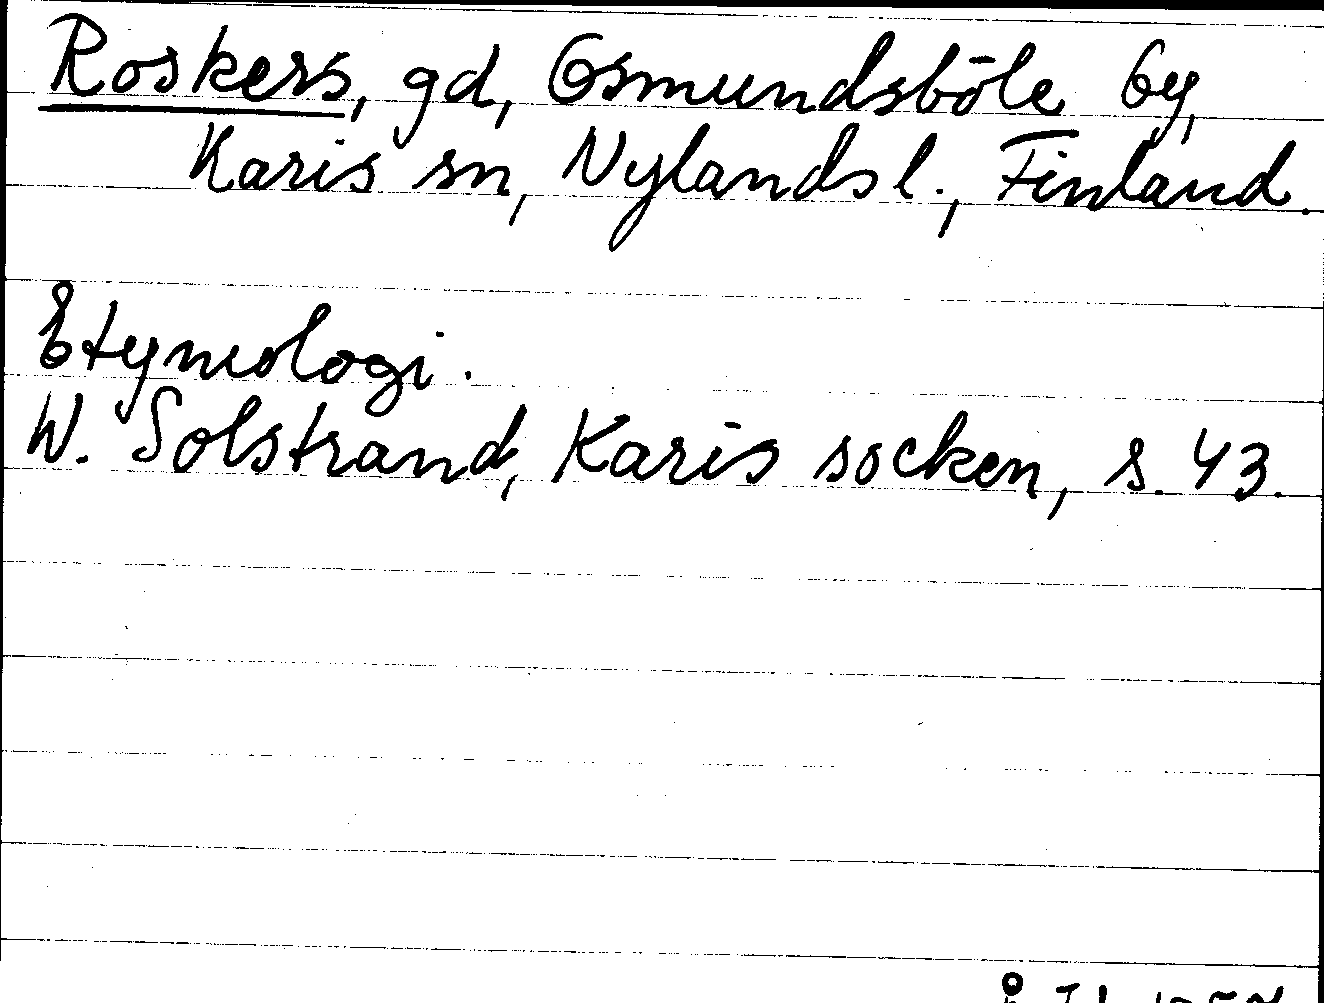 Roskers, gd, Osmundsböle by,
Karis sn, Nylands l., Finland.
Etymologi.
W. Solstrand, Karis socken, s. 43.